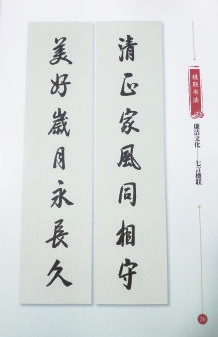 楹联书法
廉洁文化——七言楹联
清正家風同相守
美好歲月永長久